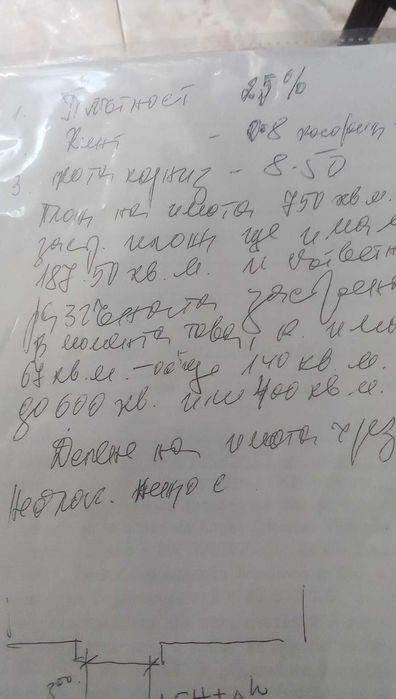 1. Плътност 25%
Кинт - 0.8 коефици
3. кота корниз - 8.50
Площ на имота 750 кв.м.
заст. площ ще има м
187.50 кв.м. и съответн
разгъната застроена
в момента това, е има
67 кв.м. - още 140 кв.м.
до 600 кв. или 400 кв.м.
Делене на имота чрез
нещо с
300